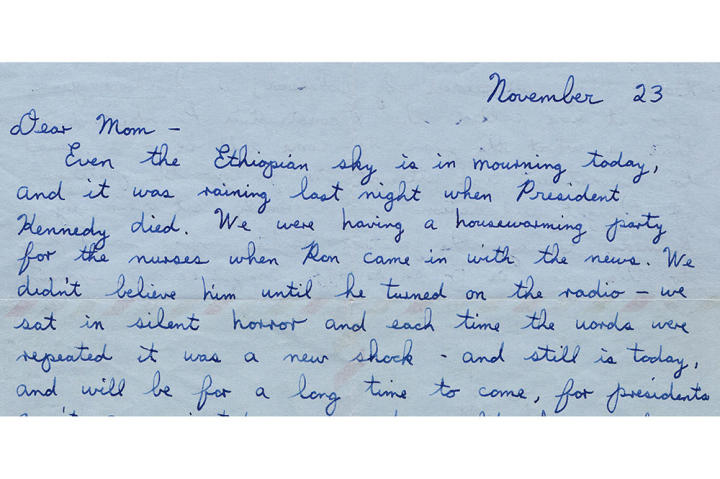 November 23
Dear Mom -
Even the Ethiopian sky is in mourning today,
and it was raining last night when President
Kennedy died. We were having a housewarming party
for the nurses when Ron came in with the news. We
didn't believe him until he turned on the radio - we
sat in silent horror and each time the words were
repeated it was a new shock - and still is today,
and will be for a long time to come, for presidents